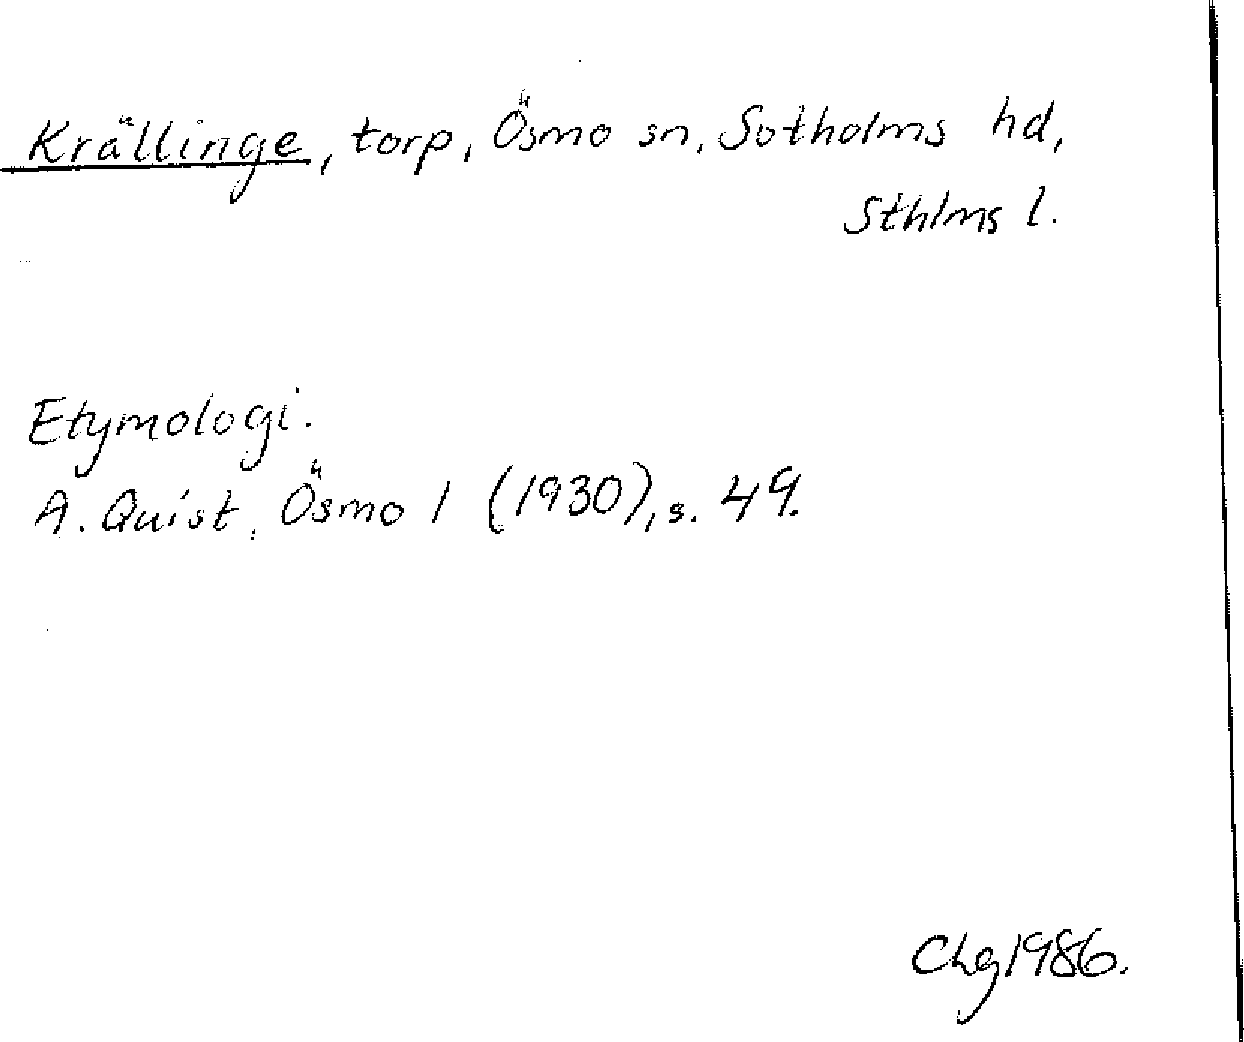 Krällinge, torp, Ösmo sn, Sotholms hd,
Sthlms l.
Etymologi.
A. Quist, Ösmo 1 (1930), s. 49.
Chg 1986.